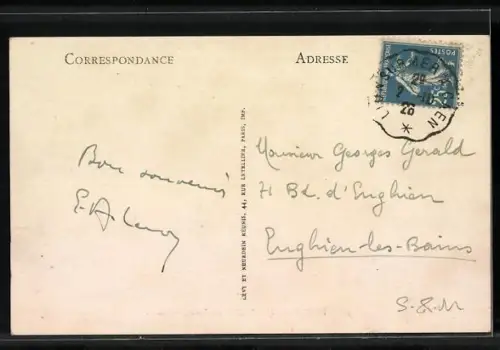 CORRESPONDANCE
ADRESSE
POSTES
29
23
Bon souvenir
Monsieur Georges Gerald
71 Bd. d'Enghien
Enghien-les-Bains
S.&.M
LÉVY ET NEURDEIN RÉUNIS, 44, RUE LETELLIER, PARIS, IMP.